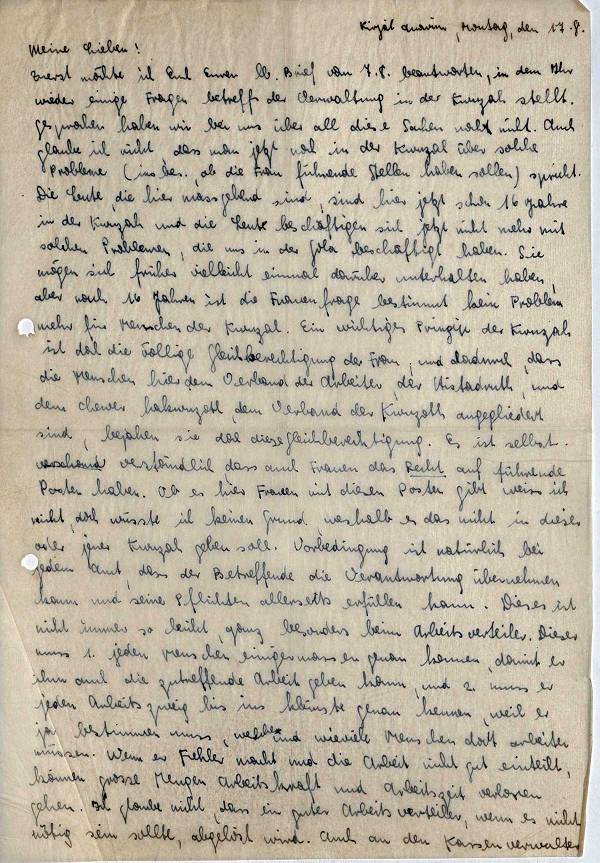 Kirjat Anavim, Montag, den 17.8.
Meine Lieben!
Zuerst möchte ich Euch Euren lb. Brief vom 7.8. beantworten, in dem Ihr
wieder einige Fragen betreffs der Verwaltung in der Kwuzah stellt.
gesprochen haben wir bei uns über all diese Sachen noch nicht. Auch
glaube ich nicht dass man jetzt noch in der Kwuzah über solche
Probleme (insbes. ob die Frau führende Stellen haben sollen) spricht.
Die Leute, die hier massgebend sind, sind hier jetzt schon 16 Jahre
in der Kwuzah und die Leute beschäftigen sich jetzt nicht mehr mit
solchen Problemen, die uns in der Gola beschäftigt haben. Sie
mögen sich früher vielleicht einmal darüber unterhalten haben,
aber nach 16 Jahren ist die Frauenfrage bestimmt kein Problem
mehr für Menschen der Kwuzah. Ein wichtiges Prinzip der Kwuzah
ist doch die völlige Gleichberechtigung der Frau, und dadurch, dass
die Menschen hier dem Verband der Arbeiter, der Histadruth, und
dem chewer hakwuzoth, dem Verband der Kwuzoth angegliedert
sind, bejahen sie doch diese Gleichberechtigung. Es ist selbst-
verständlich, dass auch Frauen das Recht auf führende
Posten haben. Ob es hier Frauen mit diesen Posten gibt weiss ich
nicht, doch wüsste ich keinen Grund, weshalb es das nicht in dieser
oder jener Kwuzah geben soll. Vorbedingung ist natürlich bei
jedem Amt, dass der Betreffende die Verantwortung übernehmen
kann und seine Pflichten allerseits erfüllen kann. Dieses ist
nicht immer so leicht, ganz besonders beim Arbeitsverteiler. Dieser
muss 1. jeden Menschen einigermassen genau kennen, damit er
ihm auch die zutreffende Arbeit geben kann, und 2. muss er
jeden Arbeitszweig bis ins kleinste genau kennen, weil er
ja bestimmen muss, welche und wieviele Menschen dort arbeiten
müssen. Wenn er Fehler macht und die Arbeit nicht gut einteilt,
können grosse Mengen Arbeitskraft und Arbeitszeit verloren
gehen. Ich glaube nicht, dass ein guter Arbeitsverteiler, wenn es nicht
nötig sein sollte, abgelöst wird. Auch an den Kassenverwalter